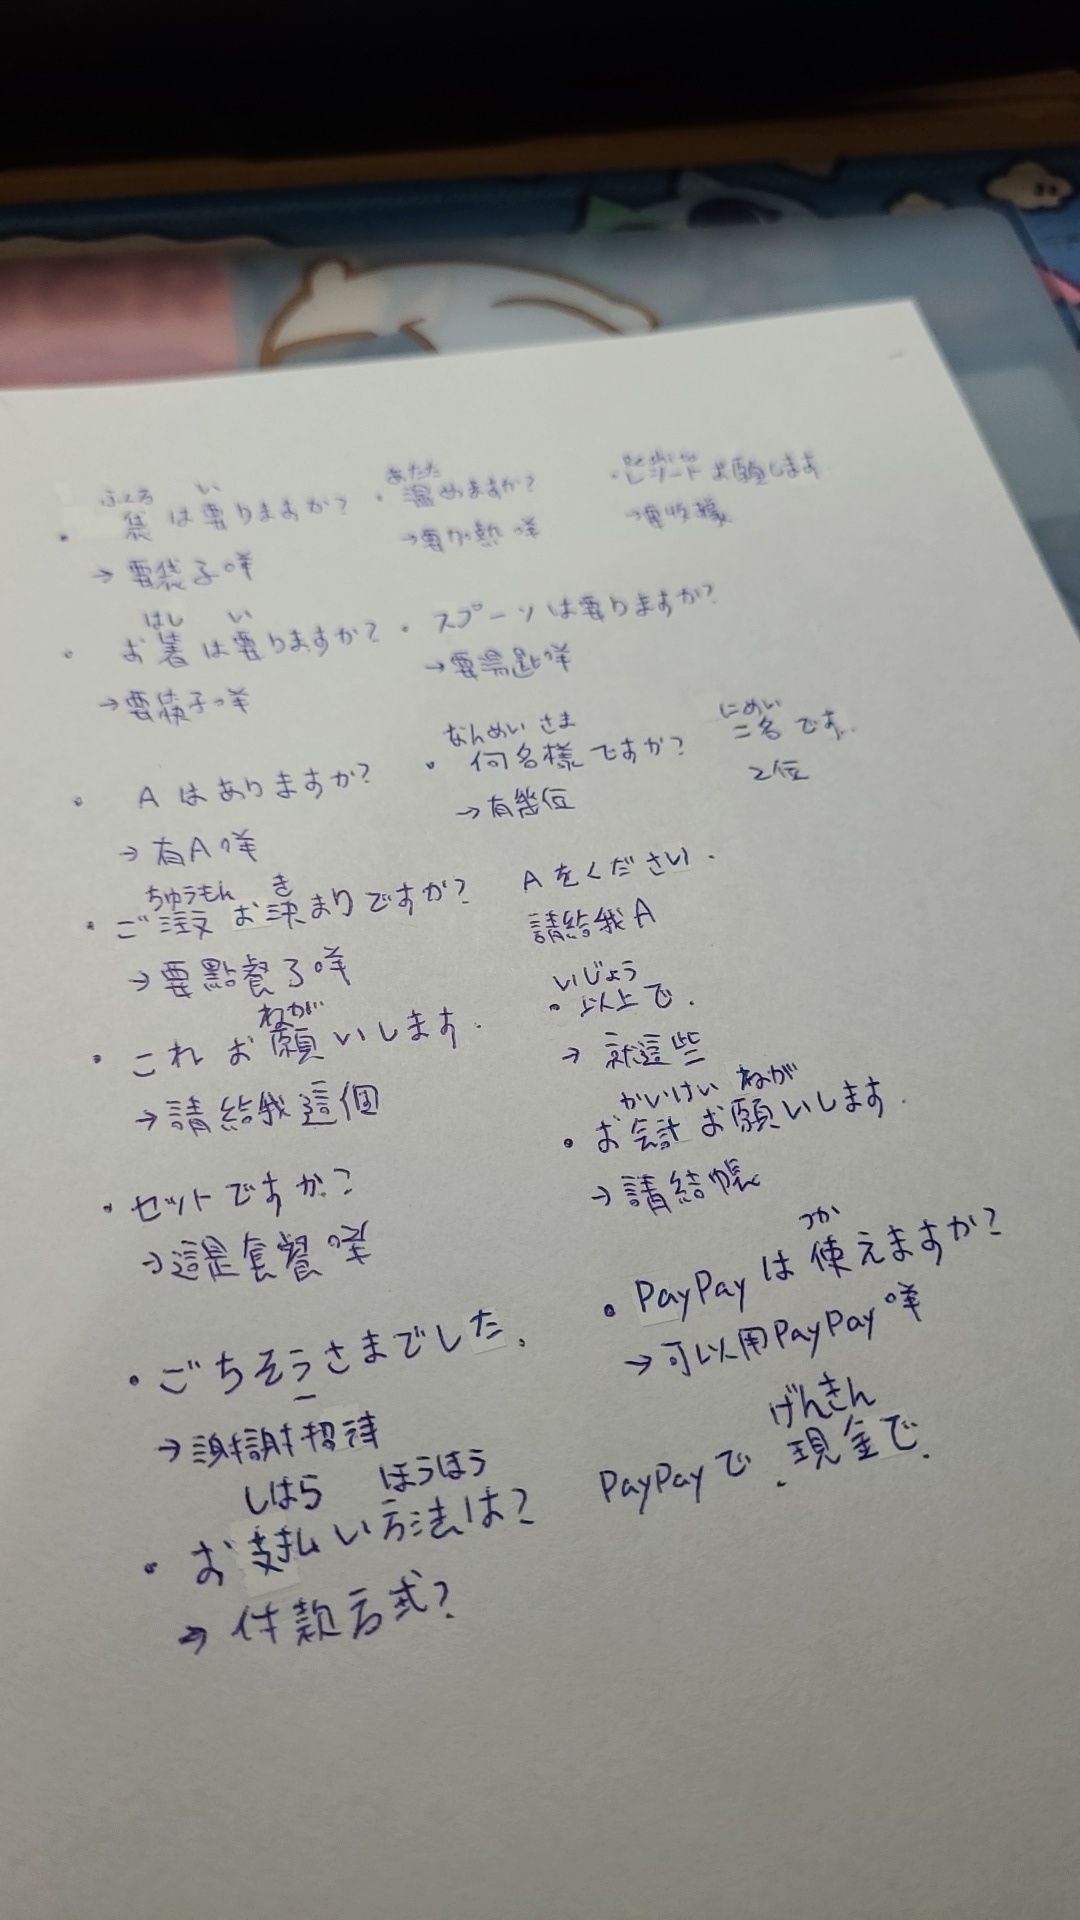 ふくろ い
・ 袋は要りますか?
→ 要袋子咩
あたた
・ 温めますか?
→要加熱咩
お願します
→要收據
はし い
・ お箸は要りますか?
→要筷子咩
・ スプーンは要りますか?
→要湯匙咩
・ Aはありますか?
→ 有A咩
なんめい さま
・ 何名様ですか?
→有幾位
にめい
二名です.
2位
ちゅうもん き
・ ご注文お決まりですか?
→要點餐了咩
Aをください.
請給我A
ねが
・ これお願いします.
→請給我這個
いじょう
・ 以上で.
→ 就這些
かいけい ねが
・ お会計お願いします.
→請結帳
・ セットですか?
→這是套餐咩
つか
・ PayPayは使えますか?
→可以用PayPay咩
・ ごちそうさまでした.
→謝謝招待
げんきん
PayPayで.現金で.
しはら ほうほう
・ お支払い方法は?
→ 付款方式?